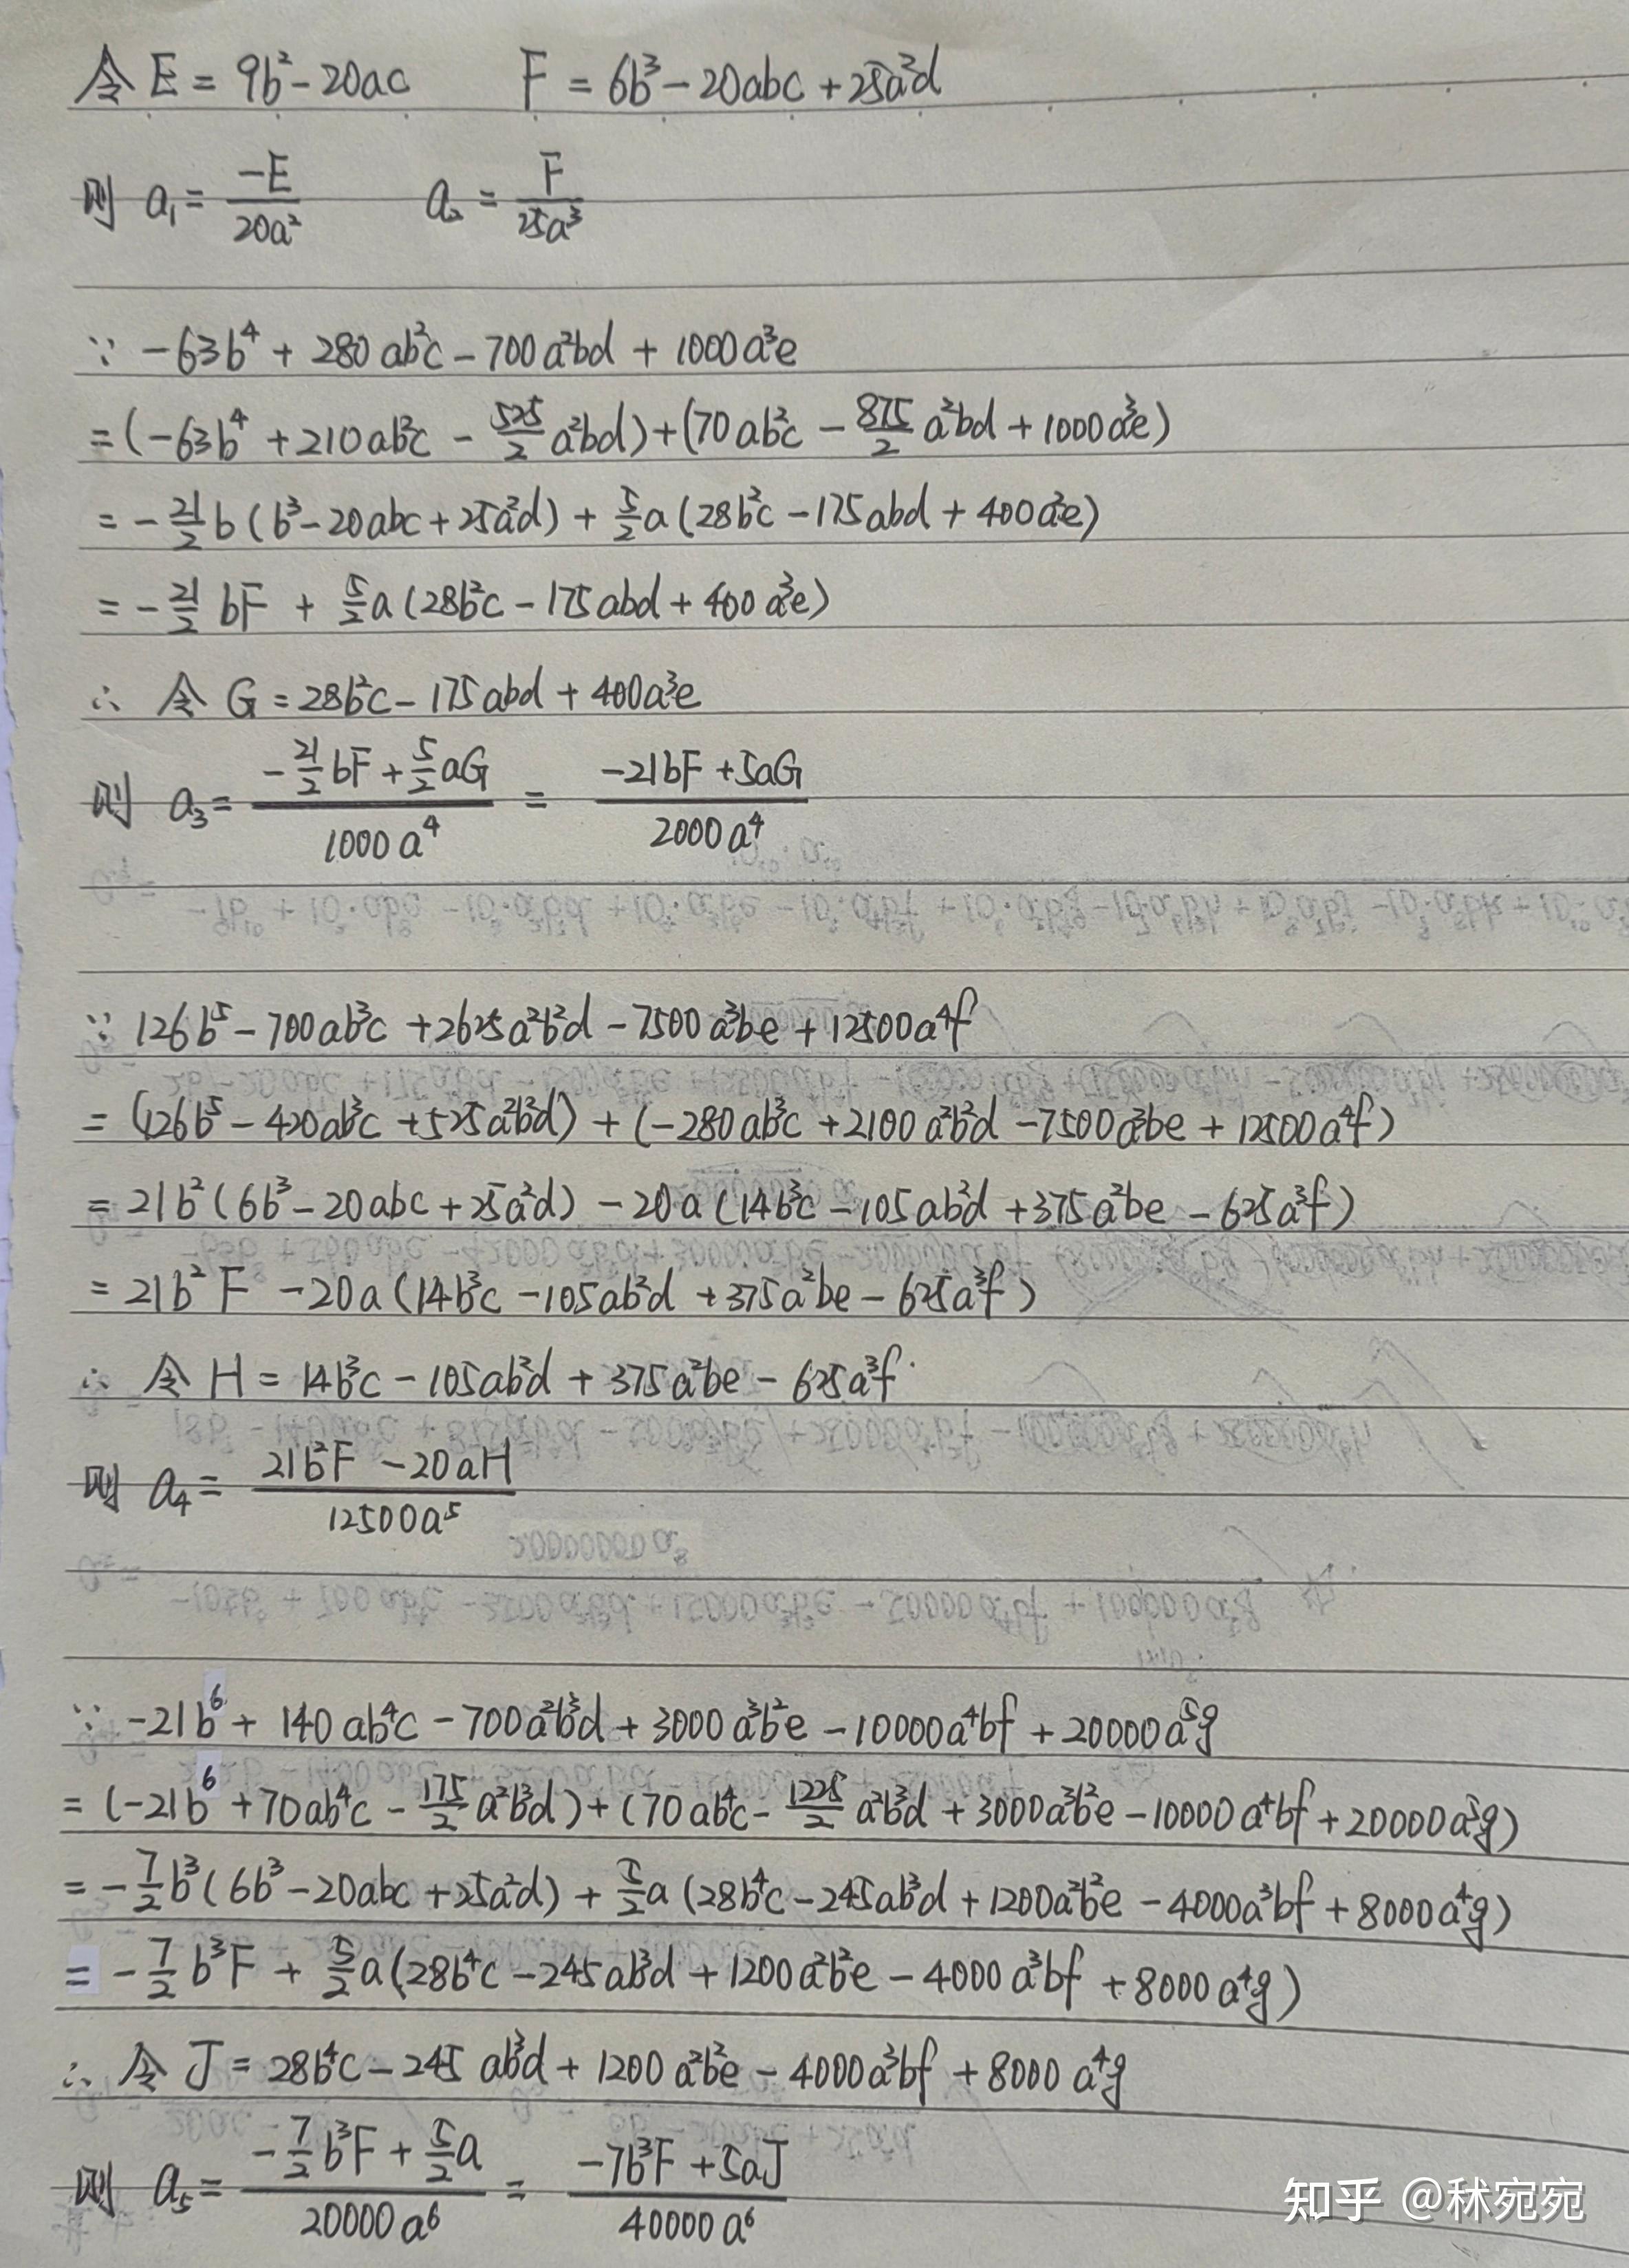 令 E = 9b² - 20ac F = 6b³ - 20abc + 25a²d
则 a₁ = -E / 20a² a₂ = F / 25a³
∵ -63b⁴ + 280ab²c - 700a²bd + 1000a³e
= (-63b⁴ + 210ab²c - 525/2 a²bd) + (70ab²c - 875/2 a²bd + 1000a³e)
= -21/2 b(b³ - 20abc + 25a²d) + 5/2 a(28b²c - 175abd + 400a²e)
= -21/2 bF + 5/2 a(28b²c - 175abd + 400a²e)
∴ 令 G = 28b²c - 175abd + 400a³e
则 a₃ = (-21/2 bF + 5/2 aG) / 1000a⁴ = (-21bF + 5aG) / 2000a⁴
∵ 126b⁵ - 700ab³c + 2625a²b²d - 7500a³be + 12500a⁴f
= (126b⁵ - 420ab³c + 525a²b²d) + (-280ab³c + 2100a²b²d - 7500a³be + 12500a⁴f)
= 21b²(6b³ - 20abc + 25a²d) - 20a(14b³c - 105ab²d + 375a²be - 625a³f)
= 21b²F - 20a(14b³c - 105ab²d + 375a²be - 625a³f)
∴ 令 H = 14b³c - 105ab²d + 375a²be - 625a³f
则 a₄ = (21b²F - 20aH) / 12500a⁵
∵ -21b⁶ + 140ab⁴c - 700a²b³d + 3000a³b²e - 10000a⁴bf + 20000a⁵g
= (-21b⁶ + 70ab⁴c - 175/2 a²b³d) + (70ab⁴c - 1225/2 a²b³d + 3000a³b²e - 10000a⁴bf + 20000a⁵g)
= -7/2 b³(6b³ - 20abc + 25a²d) + 5/2 a(28b⁴c - 245ab³d + 1200a²b²e - 4000a³bf + 8000a⁴g)
= -7/2 b³F + 5/2 a(28b⁴c - 245ab³d + 1200a²b²e - 4000a³bf + 8000a⁴g)
∴ 令 J = 28b⁴c - 245ab³d + 1200a²b²e - 4000a³bf + 8000a⁴g
则 a₅ = (-7/2 b³F + 5/2 a) / 20000a⁶ = (-7b³F + 5aJ) / 40000a⁶
知乎 @秝宛宛